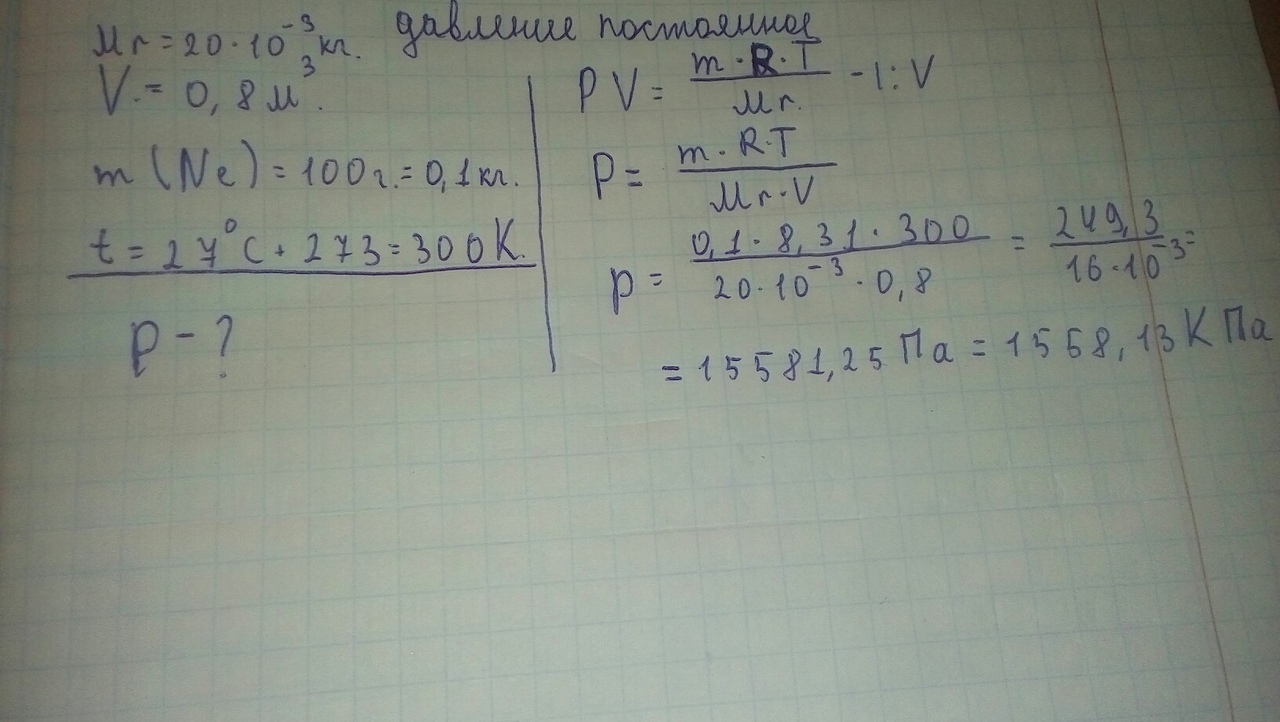 Mr = 20·10⁻³ кг. давление постоянное
V. = 0,8 м³.
m (Ne) = 100 г. = 0,1 кг.
t = 27°C + 273 = 300 K.
p - ?
PV = m·R·T / Mr. -1:V
P = m·R·T / Mr·V
p = 0,1·8,31·300 / 20·10⁻³·0,8 = 249,3 / 16·10⁻³ =
= 15581,25 Па = 1558,13 К Па